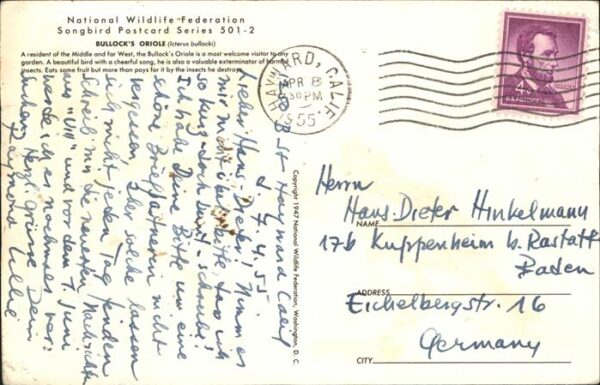 National Wildlife Federation
Songbird Postcard Series 501-2
BULLOCK'S ORIOLE (Icterus bullocki)
A resident of the Middle and far West, the Bullock's Oriole is a most welcome visitor to any
garden. A beautiful bird with a cheerful song, he is also a valuable exterminator of harmful
insects. Eats some fruit but more than pays for it by the insects he destroys.
HAYWARD, CALIF.
APR 8
30 PM
1955
4¢
Hayward Calif
d. 7.4.55
Lieber Hans-Dieter! Nimm es
mir nicht übel, dass ich
so kurz - doch bunt - schreibe!
Ich habe Deine Bitte um eine
schöne Briefpartnerin nicht
vergessen. Aber welche lassen
sich nicht jeden Tag finden
Schreib mir die neuesten Nachrichten
und vor dem 7. Juni
werde ich es nochmals ver-
suchen. Herzl. Grüsse Dein
Copyright 1947 National Wildlife Federation, Washington, D. C.
Herrn
Hans-Dieter Hinkelmann
NAME
17b Kuppenheim b. Rastatt
Baden
ADDRESS
Eichelbergstr. 16
Germany
CITY